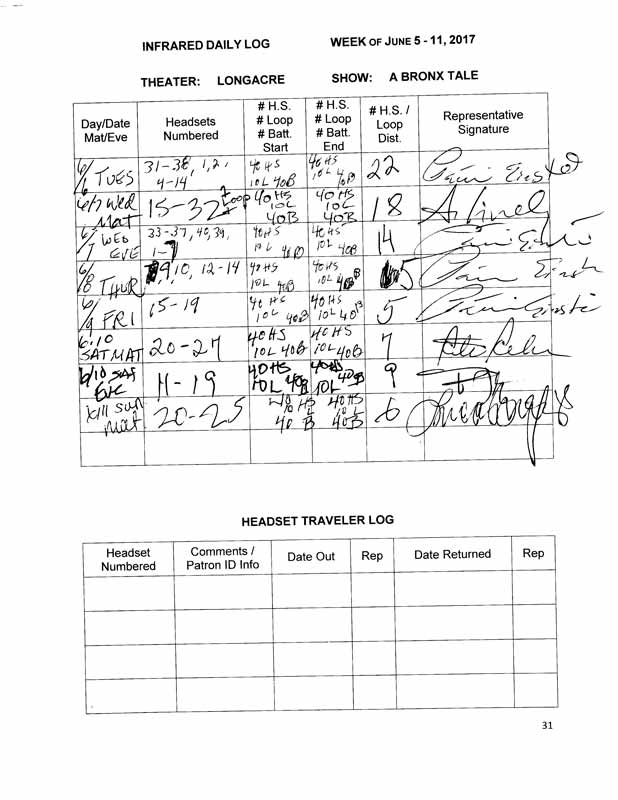 INFRARED DAILY LOG WEEK OF JUNE 5 - 11, 2017
THEATER: LONGACRE SHOW: A BRONX TALE
Day/Date Mat/Eve
Headsets Numbered
# H.S. # Loop # Batt. Start
# H.S. # Loop # Batt. End
# H.S. / Loop Dist.
Representative Signature
6/6 TUES 31-38, 1, 2, 4-14 40 HS 10L 40B 40 HS 10L 40B 22
6/7 Wed Mat 15-32 + Loop 40 HS 10L 40B 40HS 10L 40B 18
6/7 WED EVE 33-37, 40, 39, 1-7 40HS 10L 40B 40 HS 10L 40B 14
6/8 THUR 9, 10, 12-14 40HS 10L 40B 40HS 10L 40B 5
6/9 FRI 15-19 40 HS 10L 40B 40HS 10L 40B 5
6/10 SAT MAT 20-27 40HS 10L 40B 40HS 10L 40B 7
6/10 SAT EVE 11-19 40HS 10L 40B 40HS 10L 40B 9
sun mat 20-25 40 B 40B 6
HEADSET TRAVELER LOG
Headset Numbered
Comments / Patron ID Info
Date Out
Rep
Date Returned
Rep
31